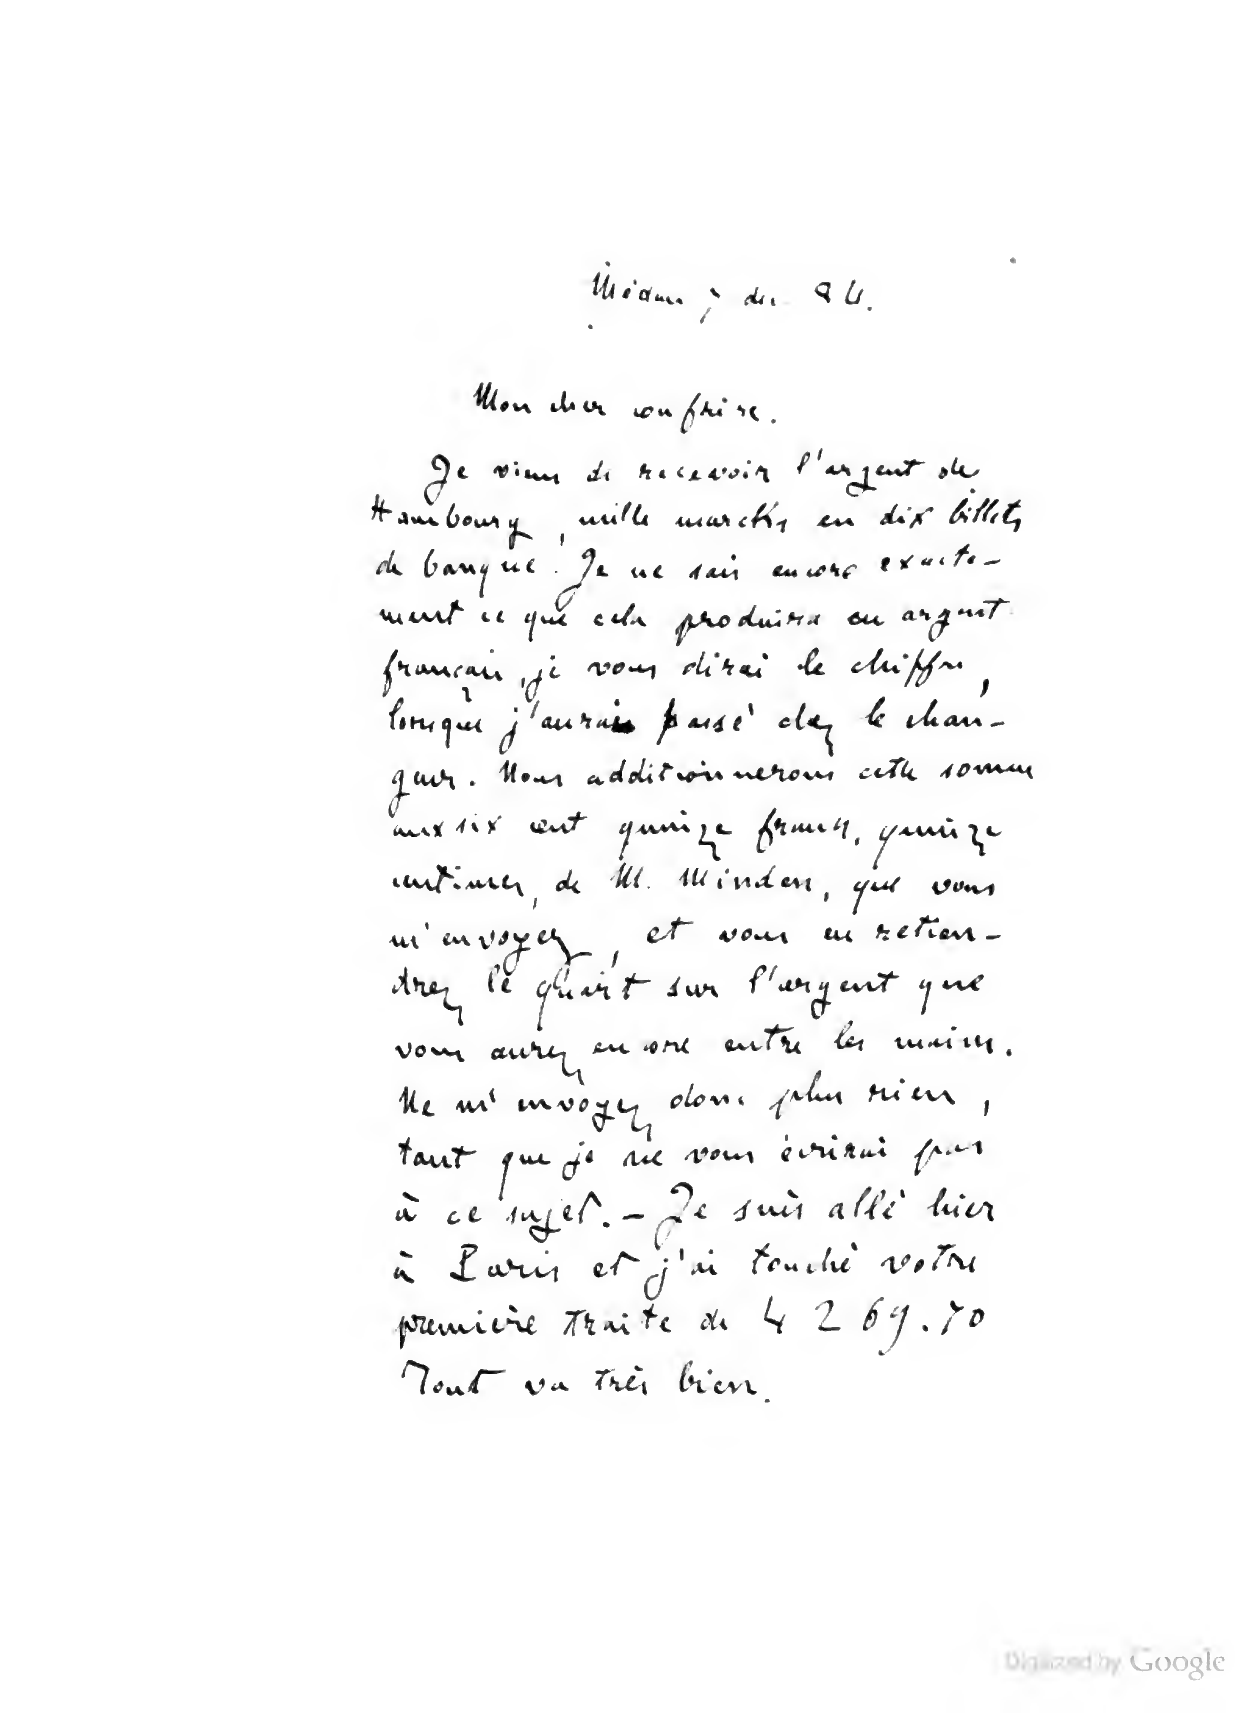 Médan 7 déc 84.
Mon cher confrère.
Je viens de recevoir l'argent de
Hambourg, mille marcks en dix billets
de banque. Je ne sais encore exacte-
ment ce que cela produira en argent
français, je vous dirai le chiffre,
lorsque j'aurai passé chez le chan-
geur. Nous additionnerons cette somme
aux six cent quinze francs, quinze
centimes, de M. Minden, que vous
m'envoyez, et vous en retien-
drez le quart sur l'argent que
vous aurez encore entre les mains.
Ne m'envoyez donc plus rien,
tant que je ne vous écrirai pas
à ce sujet. – Je suis allé hier
à Paris et j'ai touché votre
première traite de 4269.70
Tout va très bien.
Digitized by Google